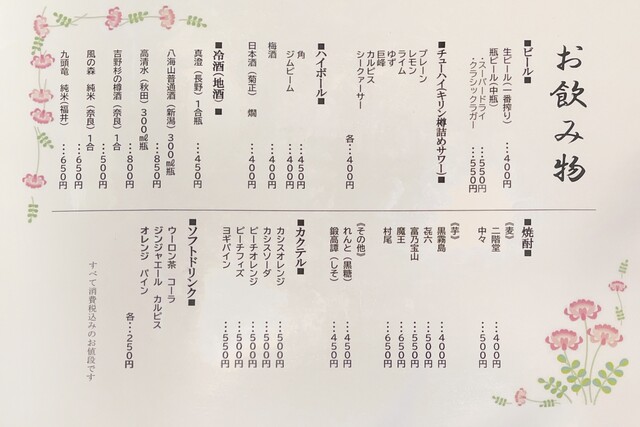 お飲み物
■ビール■
生ビール(一番搾り) …400円
瓶ビール(中瓶)
・スーパードライ …550円
・クラシックラガー …550円
■チューハイ(キリン樽詰めサワー)■
プレーン
レモン
ライム
ゆず
巨峰
カルピス
シークァーサー
各…400円
■ハイボール■
角 …450円
ジムビーム …400円
梅酒 …400円
日本酒(菊正) 燗 …400円
■冷酒(地酒)■
真澄(長野)1合瓶 …450円
八海山普通酒(新潟)300㎖瓶 …850円
高清水(秋田)300㎖瓶 …800円
吉野杉の樽酒(奈良)1合 …500円
風の森 純米(奈良)1合 …650円
九頭竜 純米(福井) …650円
■焼酎■
《麦》
二階堂 …400円
中々 …500円
《芋》
黒霧島 …400円
㐂六 …500円
富乃宝山 …550円
魔王 …650円
村尾 …650円
《その他》
れんと(黒糖) …450円
鍛高譚(しそ) …450円
■カクテル■
カシスオレンジ …500円
カシスソーダ …500円
ピーチオレンジ …500円
ピーチフィズ …500円
ヨギパイン …550円
■ソフトドリンク■
ウーロン茶 コーラ
ジンジャエール カルピス
オレンジ パイン
各…250円
すべて消費税込みのお値段です